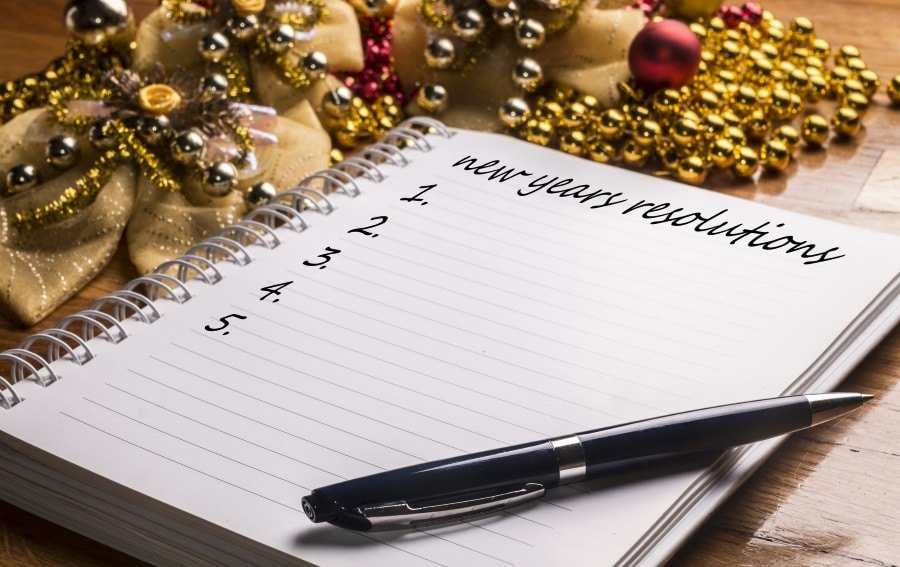 new years resolutions
1.
2.
3.
4.
5.